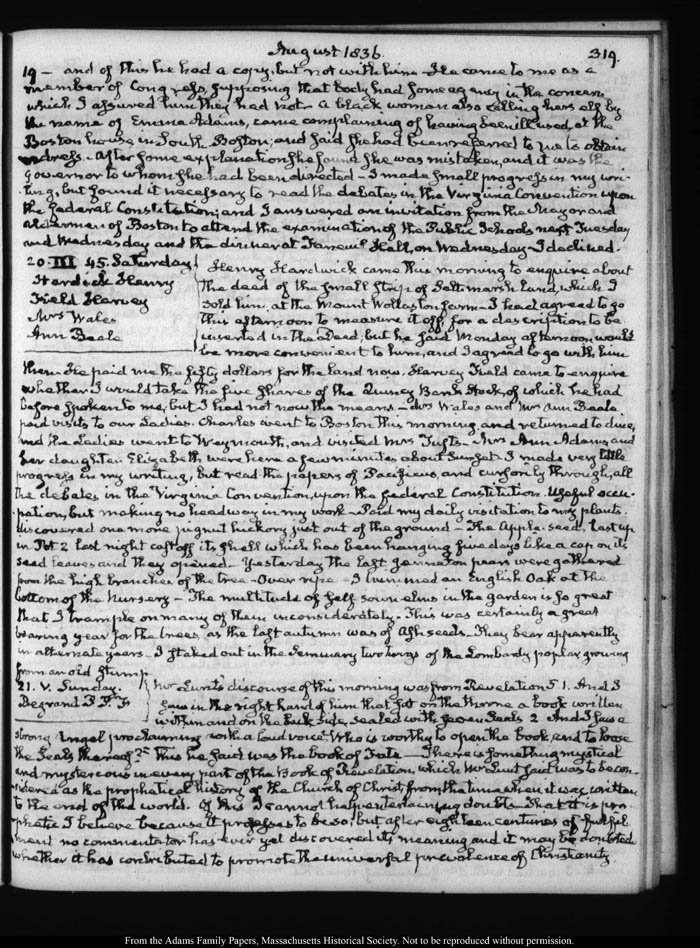 August 1836.
319.
19 — and of this he had a copy, but not with him. He came to me as a
member of Congress, supposing that body had some agency in the concern
which I assured him they had not. A black woman also calling herself by
the name of Emma Adams, came complaining of having been ill used, at the
Boston house in South Boston; and said she had been referred to me to obtain
redress. After some explanation she found she was mistaken, and it was the
Governor to whom she had been directed — I made small progress in my wri-
ting, but found it necessary to read the debates in the Virginia Convention upon
the federal Constitution; and I answered an invitation from the Mayor and
Aldermen of Boston to attend the examination of the Public Schools next Tuesday
and Wednesday and the dinner at Faneuil Hall, on Wednesday — I declined.
20. III. 45. Saturday
Hardick Henry
Field Harvey
Mrs Wales
Ann Beale
Henry Hardwick came this morning to enquire about
the deed of the small strip of Salt marsh land, which I
sold him, at the Mount Wollaston farm — I had agreed to go
this afternoon to measure it off, for a description to be
inserted in the Deed; but he said Monday afternoon would
be more convenient to him, and I agreed to go with him
then. He paid me the fifty dollars for the land now. Harvey Field came to enquire
whether I would take the five shares of the Quincy Bank Stock, of which he had
before spoken to me, but I had not now the means — Mrs Wales and Mrs Ann Beale
paid visits to our Ladies. Charles went to Boston this morning, and returned to dine,
and the Ladies went to Weymouth, and visited Mrs Tufts — Mrs Ann Adams, and
her daughter Elizabeth were here a few minutes about Sunset. I made very little
progress in my writing, but read the papers of Pacificus, and cursorily through, all
the debates in the Virginia Convention, upon the federal Constitution. Useful occu-
pation, but making no headway in my work — Paid my daily visitation to my plants.
discovered one more pignut hickory just out of the ground — The Apple-seed, last up
in Pot 2 last night cast off its shell which has been hanging five days like a cap on its
seed leaves and they opened — Yesterday the last pears were gathered
from the high branches of the tree — Over ripe — I trimmed an English Oak at the
bottom of the Nursery — The multitude of self sown elms in the garden is so great
that I trample on many of them inconsiderately. This was certainly a great
bearing year for the trees, as the last autumn was of Ash seeds — They bear apparently
in alternate years — I staked out in the Seminary two twigs of the Lombardy poplar growing
from an old stump.
21. V. Sunday.
Degrand P. P. F
Mr Lunt's discourse of this morning was from Revelation 5. 1. And I
saw in the right hand of him that sat on the throne a book written
within and on the back side, sealed with seven Seals 2 And I saw a
strong Angel proclaiming with a loud voice, Who is worthy to open the book, and to loose
the Seals thereof? This he said was the book of Fate — There is something mystical
and mysterious in every part of the Book of Revelation, which Mr Lunt said was to be con-
sidered as the prophetical history of the Church of Christ, from the time when it was written
to the end of the world. Of this I cannot help entertaining doubts. That it is pro-
phetic I believe because it professes to be so; but after eighteen centuries of fulfil
ment no commentator has ever yet discovered its meaning, and it may be doubted
whether it has contributed to promote the universal prevalence of Christianity
From the Adams Family Papers, Massachusetts Historical Society. Not to be reproduced without permission.